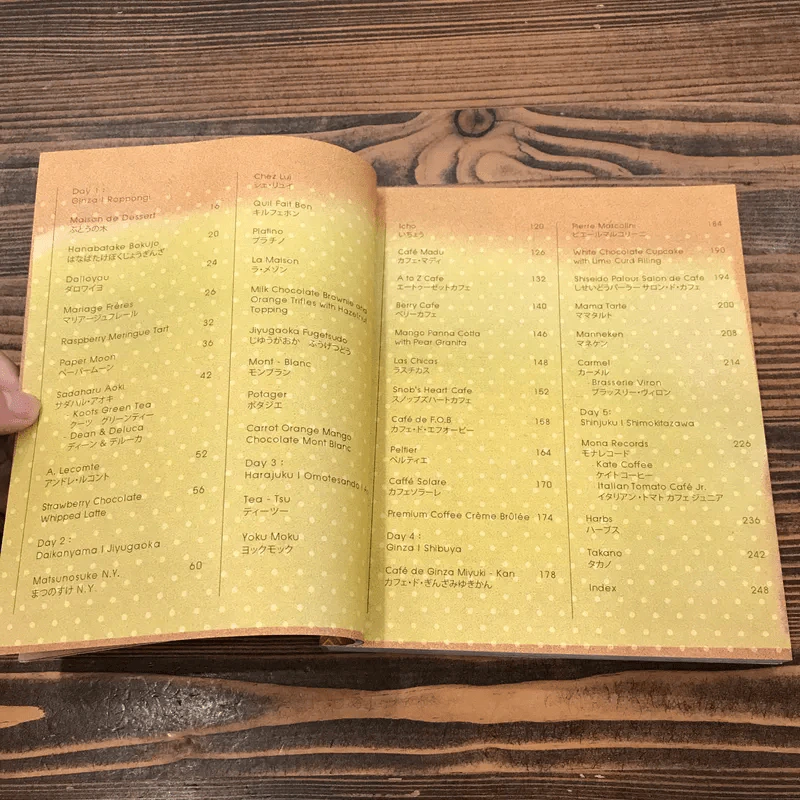 Day 1 :
Ginza | Roppongi
Maison de Dessert 16
ぶとうの木
Hanabatake Bokujo 20
はなばたけぼくじょうぎんざ
Dalloyau 24
ダロワイヨ
Mariage Frères 26
マリアージュフレール
Raspberry Meringue Tart 32
Paper Moon 36
ペーパームーン
Sadaharu Aoki 42
サダハル・アオキ
- Koots Green Tea
クーツ グリーンティー
- Dean & Deluca
ディーン & デルーカ
A. Lecomte 52
アンドレ・ルコント
Strawberry Chocolate 56
Whipped Latte
Day 2 :
Daikanyama | Jiyugaoka
Matsunosuke N.Y. 60
まつのすけ N.Y.
Chez Lui
シェ・リュイ
Quil Fait Bon
キルフェボン
Platino
プラチノ
La Maison
ラ・メゾン
Milk Chocolate Brownie and
Orange Trifles with Hazelnut
Topping
Jiyugaoka Fugetsudo
じゆうがおか ふうげつどう
Mont - Blanc
モンブラン
Potager
ポタジエ
Carrot Orange Mango
Chocolate Mont Blanc
Day 3 :
Harajuku | Omotesando |
Tea - Tsu
ティーツー
Yoku Moku
ヨックモック
Icho 120
いちょう
Café Madu 126
カフェ・マディ
A to Z Cafe 132
エートゥーゼットカフェ
Berry Cafe 140
ベリーカフェ
Mango Panna Cotta 146
with Pear Granita
Las Chicas 148
ラスチカス
Snob's Heart Cafe 152
スノッブズハートカフェ
Café de F.O.B 158
カフェ・ド・エフオービー
Peltier 164
ペルティエ
Caffé Solare 170
カフェソラーレ
Premium Coffee Crème Brûlée 174
Day 4 :
Ginza | Shibuya
Café de Ginza Miyuki - Kan 178
カフェ・ド・ぎんざみゆきかん
Pierre Marcolini 184
ピエールマルコリーニ
White Chocolate Cupcake 190
with Lime Curd Filling
Shiseido Palour Salon de Cafe 194
しせいどうパーラー サロン・ド・カフェ
Mama Tarte 200
ママタルト
Manneken 208
マネケン
Carmel 214
カーメル
- Brasserie Viron
ブラッスリー・ヴィロン
Day 5:
Shinjuku | Shimokitazawa
Mona Records 226
モナレコード
Kate Coffee
ケイトコーヒー
Italian Tomato Café Jr.
イタリアン・トマト カフェ ジュニア
Harbs 236
ハーブス
Takano 242
タカノ
Index 248